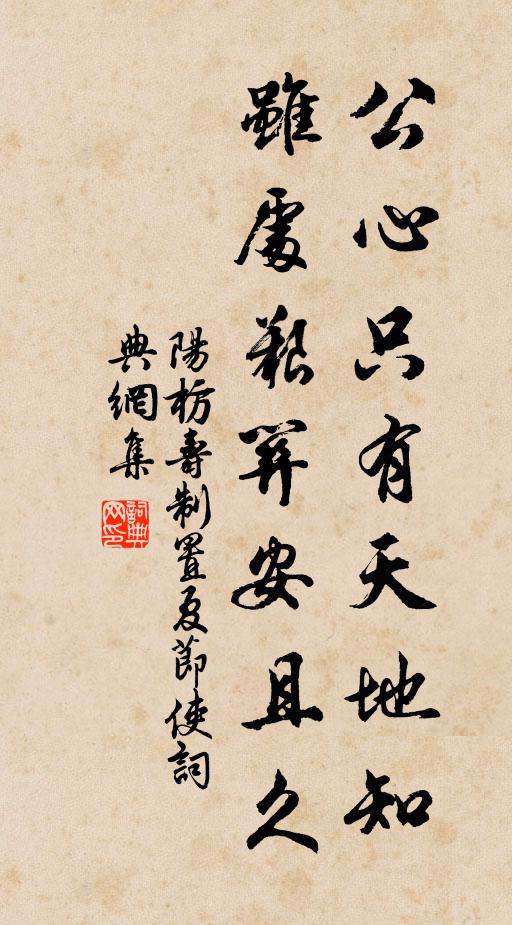 公心只有天地知
雖處艱安且久
陽枋壽制置夏節使詞
典網集
詞典
网印